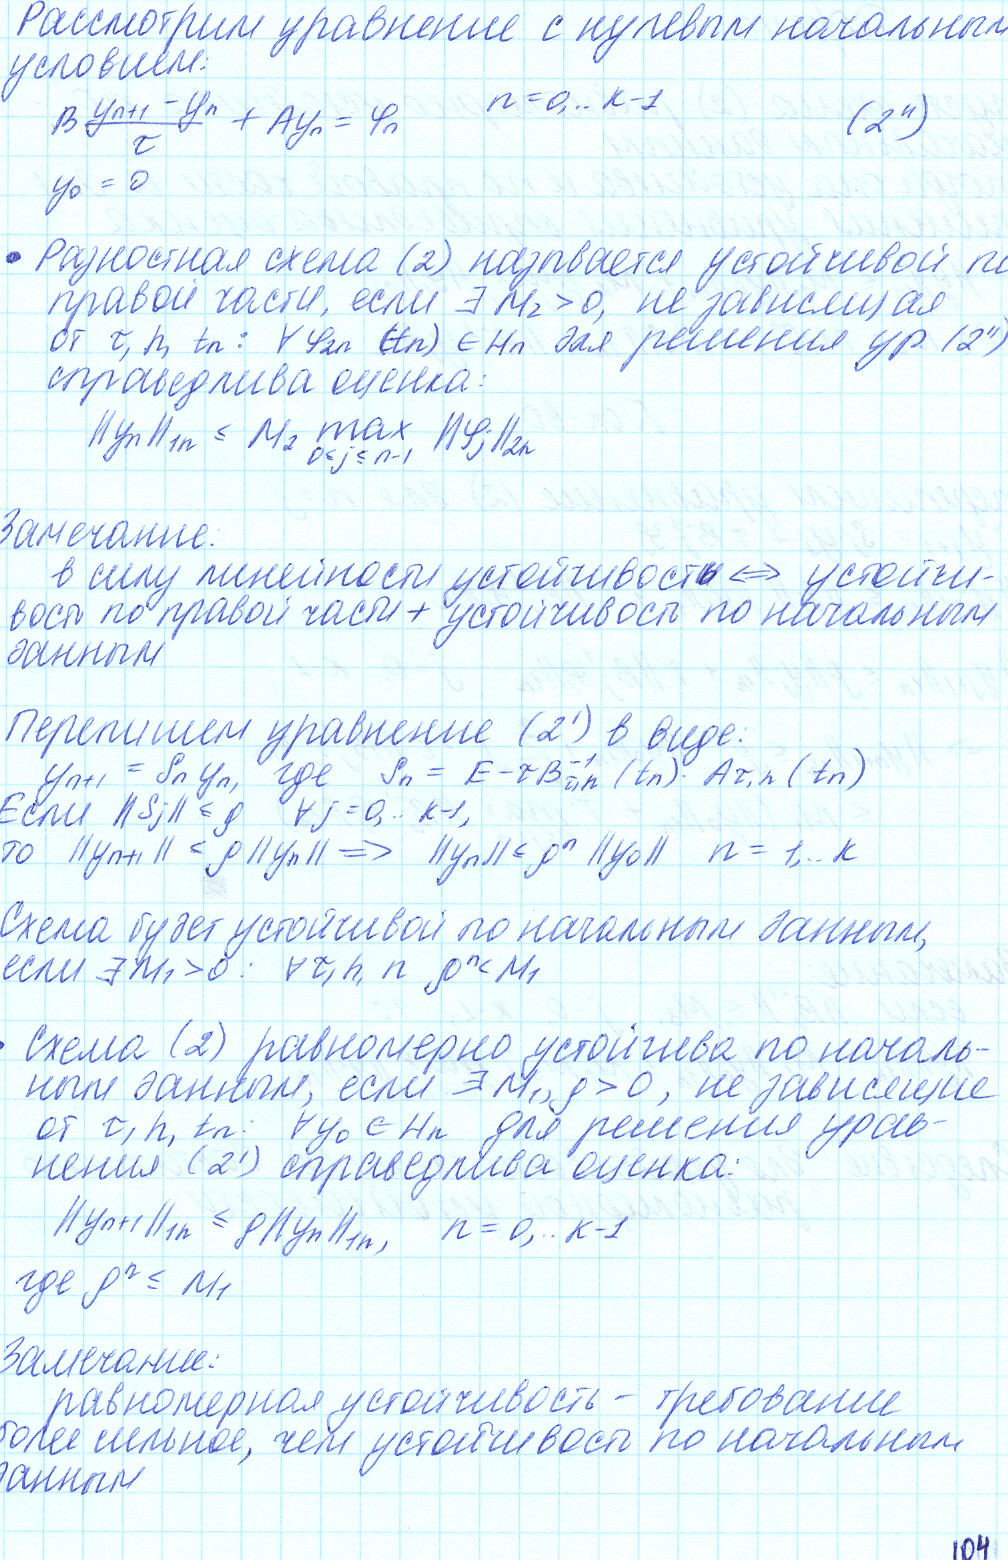 Рассмотрим уравнение с нулевым начальным
условием:
B (yₙ₊₁ - yₙ)/τ + Ayₙ = φₙ   n = 0,.. K-1   (2'')
y₀ = 0
• Разностная схема (2) называется устойчивой по
правой части, если ∃ M₂ > 0, не зависящая
от τ, h, tₙ: ∀ φ₂ₙ (tₙ) ∈ Hₙ для решения ур. (2'')
справедлива оценка:
||yₙ||₁ₙ ≤ M₂ max ||φⱼ||₂ₙ
0≤j≤n-1
Замечание:
в силу линейности устойчивость ⇔ устойчи-
вость по правой части + устойчивость по начальным
данным
Перепишем уравнение (2') в виде:
yₙ₊₁ = Sₙ yₙ, где Sₙ = E - τB⁻¹τ,h (tₙ) · Aτ,h (tₙ)
Если ||Sj|| ≤ ρ ∀j = 0,.. K-1,
то ||yₙ₊₁|| ≤ ρ||yₙ|| ⟹ ||yₙ|| ≤ ρⁿ ||y₀||   n = 1,.. K
Схема будет устойчивой по начальным данным,
если ∃ M₁ > 0: ∀ τ, h, n ρⁿ < M₁
• Схема (2) равномерно устойчива по началь-
ным данным, если ∃ M₁, ρ > 0, не зависящие
от τ, h, tₙ: ∀ y₀ ∈ Hₙ для решения урав-
нения (2') справедлива оценка:
||yₙ₊₁||₁ₙ ≤ ρ||yₙ||₁ₙ,   n = 0,.. K-1
где ρⁿ ≤ M₁
Замечание:
равномерная устойчивость - требование
более сильное, чем устойчивость по начальным
данным
104